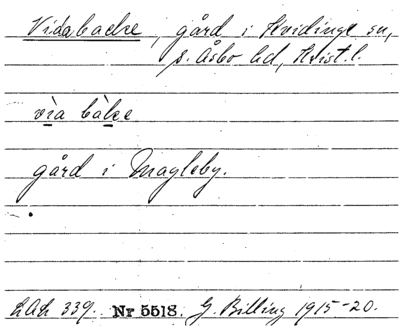 Vidabacke, gård i Hvidinge sn,
s. Åsbo hd, Krist. l.
vìa bàke
gård i Magleby.
LAL 339. Nr 5518. G. Billing 1915-20.